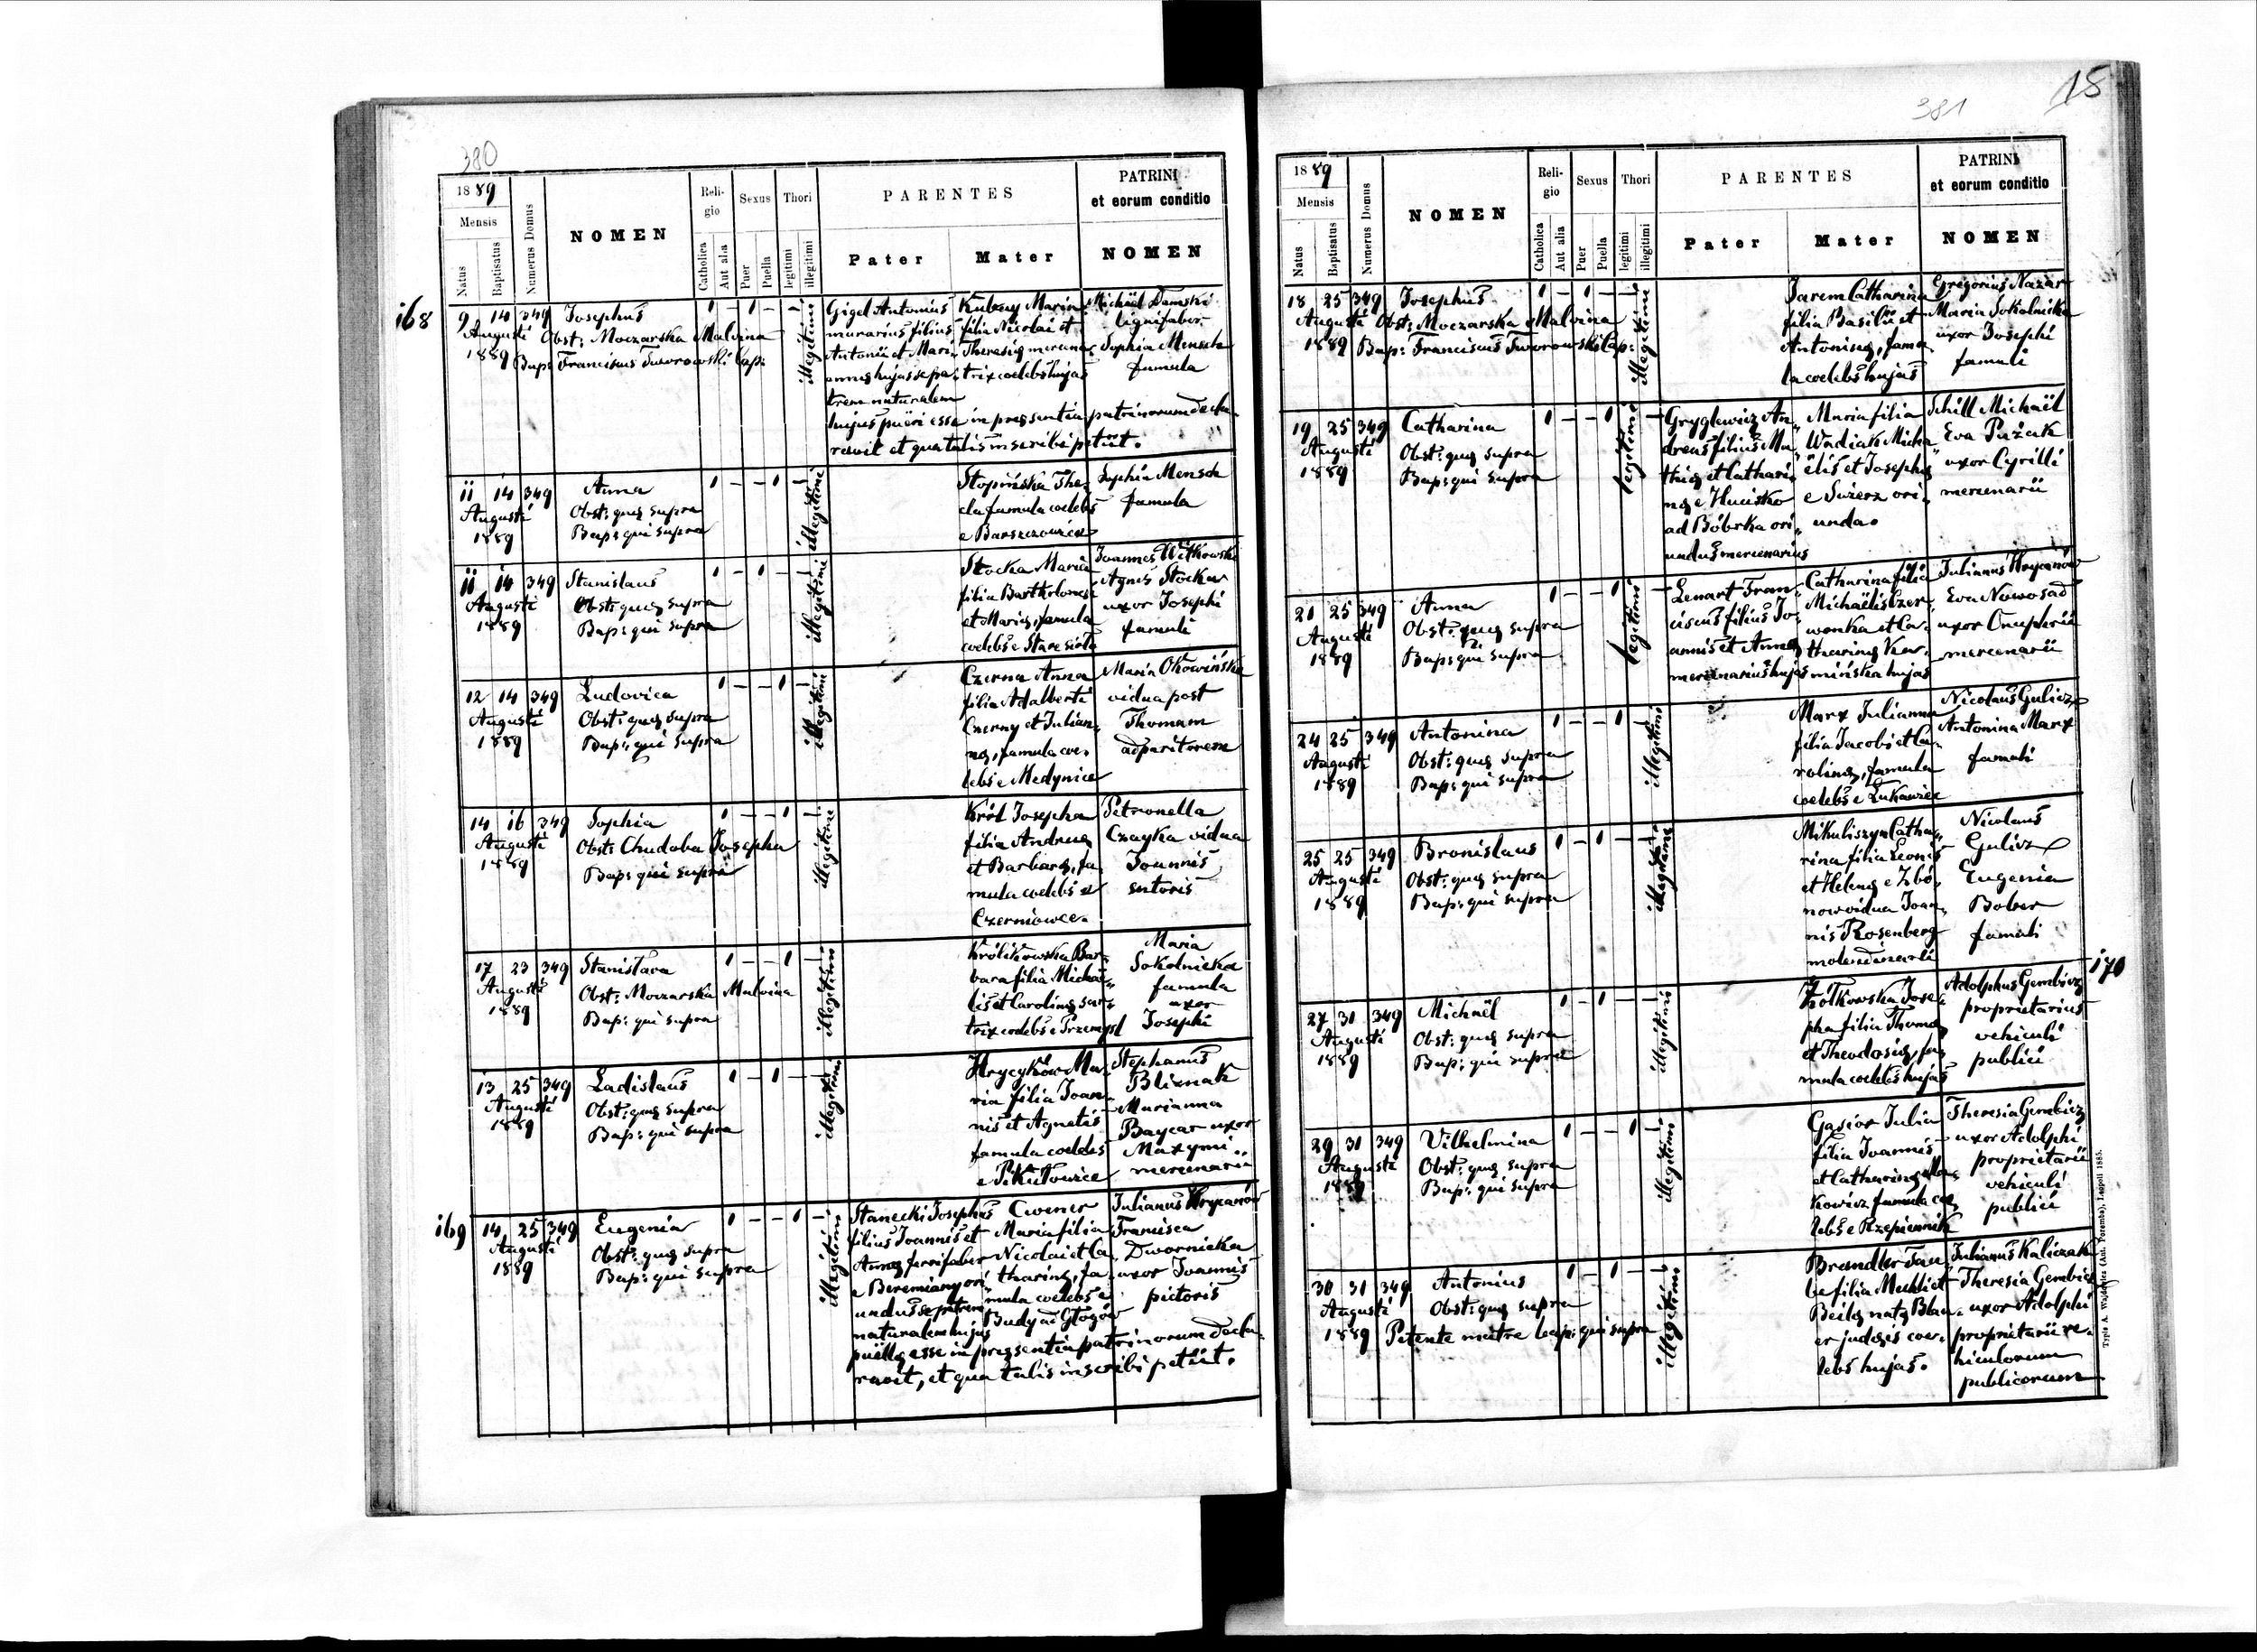 380
1889
Mensis
Natus
Baptisatus
Numerus Domus
NOMEN
Religio
Catholica
Aut alia
Sexus
Puer
Puella
Thori
legitimi
illegitimi
PARENTES
Pater
Mater
PATRINI
et eorum conditio
NOMEN
168
9 14 349 Josephus
Augusti Obst: Moczarska Malvina
1889 Bap: Franciscus Tworowski Cap:
illegitimi
Gigel Antonius
murarius filius
Antonii et Mari-
annæ hujas se pa-
trem naturalem
hujus püeri esse in præsentia patrinorum decla-
ravit et qua talis inscribi petiit.
Kubeny Maria
filia Nicolai et
Theresiæ mercena-
trix coelebs hujas
Michaël Damski
lignifaber
Sophia Mensch
famula
11 14 349 Anna
Augusti Obst: quæ supra
1889 Bap: qui supra
illegitimi
Stopińska The-
cla famula coelebs
e Barszczowice
Sophia Mensch
famula
11 14 349 Stanislaus
Augusti Obst: quæ supra
1889 Bap: qui supra
illegitimi
Stocka Maria
filia Bartholomei
et Mariæ, famula
coelebs e Stare sioło
Joannes Witkowski
Agnes Stocka
uxor Josephi
famuli
12 14 349 Ludovica
Augusti Obst: quæ supra
1889 Bap: qui supra
illegitimi
Czerna Anna
filia Adalberti
Czerny et Julian-
næ, famula coe-
lebs e Medynice
Maria Okowińska
vidua post
Thomam
adparitorem
14 16 349 Sophia
Augusti Obst: Chudoba Josepha
1889 Bap: qui supra
illegitimi
Król Josepha
filia Andreæ
et Barbaræ, fa-
mula coelebs e
Czerniowce.
Petronella
Czayka vidua
Joannis
sutoris
17 23 349 Stanislava
Augusti Obst: Moczarska Malvina
1889 Bap: qui supra
illegitimi
Królikowska Bar-
bara filia Michaë-
lis et Carolinæ sar-
trix coelebs e Przemysl
Maria
Sokolnicka
famula
uxor
Josephi
13 25 349 Ladislaus
Augusti Obst: quæ supra
1889 Bap: qui supra
illegitimi
Hrycyków Ma-
ria filia Joan-
nis et Agnetis
famula coelebs
e Pikułowice
Stephanus
Bliznak
Marianna
Baycar uxor
Maxymi
mercenarii
169
14 25 349 Eugenia
Augusti Obst: quæ supra
1889 Bap: qui supra
illegitimi
Stanecki Josephus
filius Joannis et
Annæ ferrifaber
e Beremiany ori-
undus se patrem
naturalem hujus
puellæ esse in præsentia patrinorum decla-
ravit, et qua talis inscribi petiit.
Cwener
Maria filia
Nicolai et Ca-
tharinæ, fa-
mula coelebs e
Budy ad Głogów
Julianus Hrycanów
Francisca
Dwornicka
uxor Joannis
pictoris
15
381
1889
Mensis
Natus
Baptisatus
Numerus Domus
NOMEN
Religio
Catholica
Aut alia
Sexus
Puer
Puella
Thori
legitimi
illegitimi
PARENTES
Pater
Mater
PATRINI
et eorum conditio
NOMEN
18 25 349 Josephus
Augusti Obst: Moczarska Malvina
1889 Bap: Franciscus Tworowski Cap:
illegitimi
Jarem Catharina
filia Basilii et
Antoninæ, famu-
la coelebs hujas
Gregorius Nazar
Maria Sokolnicka
uxor Josephi
famuli
19 25 349 Catharina
Augusti Obst: quæ supra
1889 Bap: qui supra
legitimi
Gryglewicz An-
dreas filius Ma-
thiæ et Cathari-
næ e Hucisko
ad Bóbrka ori-
undus mercenarius
Maria filia
Wadiak Micha-
ëlis et Josephæ
e Swierz ori-
unda.
Schill Michaël
Eva Pażak
uxor Cyrilli
mercenarii
21 25 349 Anna
Augusti Obst: quæ supra
1889 Bap: qui supra
legitimi
Lenart Fran-
ciscus filius Jo-
annis et Annæ
mercenarius hujas
Catharina filia
Michaëlis Czer-
wonka et Ca-
tharinæ Kar-
mińska hujas
Julianus Hrycanów
Eva Nowosad
uxor Onuphrii
mercenarii
24 25 349 Antonina
Augusti Obst: quæ supra
1889 Bap: qui supra
illegitimi
Marx Julianna
filia Jacobi et Ca-
rolinæ, famula
coelebs e Łukawiec
Nicolaus Gulicz
Antonina Marx
famuli
25 25 349 Bronislaus
Augusti Obst: quæ supra
1889 Bap: qui supra
illegitimi
Mikuliszyn Catha-
rina filia Leonis
et Helenæ e Zbó-
now vidua Joan-
nis Rosenberg
molendinarii
Nicolaus
Gulicz
Eugenia
Bober
famuli
170
27 31 349 Michaël
Augusti Obst: quæ supra
1889 Bap: qui supra
illegitimi
Żółkowska Jose-
pha filia Thomæ
et Theodosiæ, fa-
mula coelebs hujas
Adolphus Gembicz
proprietarius
vehiculi
publici
29 31 349 Vilhelmina
Augusti Obst: quæ supra
1889 Bap: qui supra
illegitimi
Gasior Julia
filia Joannis
et Catharinæ Ma-
kowicz famula coe-
lebs e Rzepiennik
Theresia Gembicz
uxor Adolphi
proprietarii
vehiculi
publici
30 31 349 Antonius
Augusti Obst: quæ supra
1889 Petente matre bap: qui supra
illegitimi
Brandler Tau-
be filia Mechli et
Beilæ natæ Blau-
er judæis coe-
lebs hujas.
Julianus Kaliczak
Theresia Gembicz
uxor Adolphi
proprietarii ve-
hiculorum
publicorum
Typis A. Wajdowicz (Ant. Poremba), Leopoli 1885.